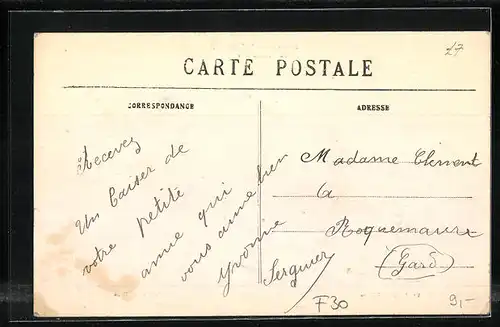 27
CARTE POSTALE
CORRESPONDANCE
ADRESSE
Recevez
Un baiser de
votre petite
amie qui
vous aime bien
Yvonne
Madame Climent
à
Roquemaure
(Gard)
F30
9,-